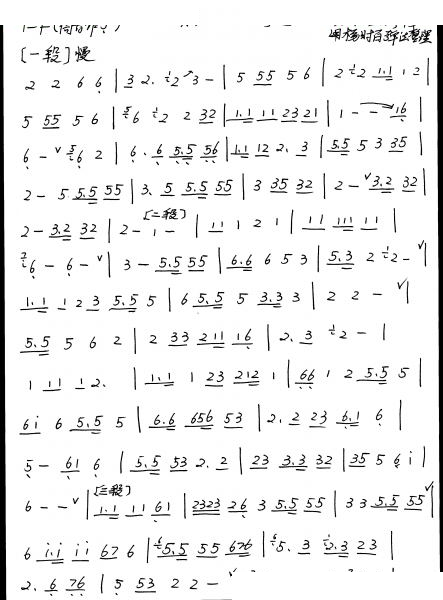 [一段] 慢
2 2 6 6 | 3 2. 2 3 - | 5 55 5 6 | 2 2 1.1 1 2 |
5 55 5 6 | 6 2 2 32 | 1.1 11 2321 | 1 - - 16 |
6 - ∨ 6 2 | 6. 6 5.5 56 | 1.1 12 2. 3 | 5.5 5 3 35 |
2 - 5 5.5 55 | 3. 5 5.5 55 | 3 35 32 | 2 - ∨ 3.2 32 |
[二段]
2 - 3.2 32 | 2 - 1 - | 11 1 2 1 | 11 111 11 |
6 - 6 - ∨ | 3 - 5.5 55 | 6.6 6 5 3 | 5.3 2 2 - ∨ |
1.1 1 2 3 5.5 5 | 6 5.5 5 3.3 3 | 2 2 - ∨ |
5.5 5 6 2 | 2 33 211 16 | 2. 3 2 - |
1 11 12. | 1.1 1 23 212 1 | 66 1 2 5.5 5 |
6i 6 5.5 5 | 6.6 656 53 | 2. 2 23 6.1 6 |
5 - 61 6 | 5.5 53 2. 2 | 23 3.3 32 | 35 5 6 i |
[三段]
6 - - ∨ | 1.1 11 61 | 2323 26 3 5.5 55 | 3 3 5.5 55 ∨ |
6 i.i ii 676 6 | 5.5 55 676 | 5. 3 2.3 23 |
2. 6 76 | 5 53 2 2 - ∨